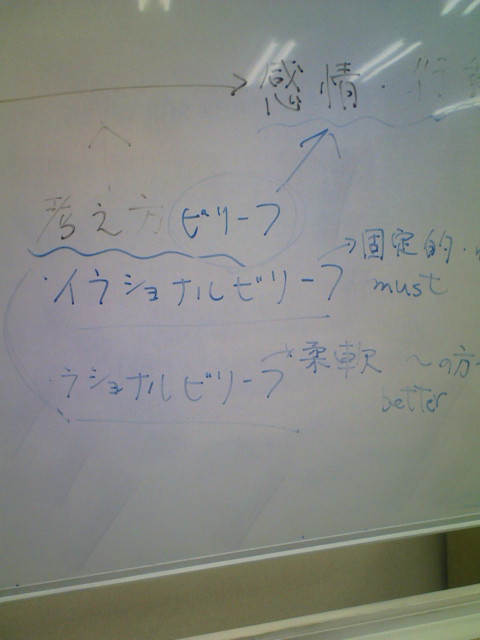 感情・行動
考え方 ビリーフ
・イラショナルビリーフ → 固定的・
must
・ラショナルビリーフ → 柔軟 〜の方
better